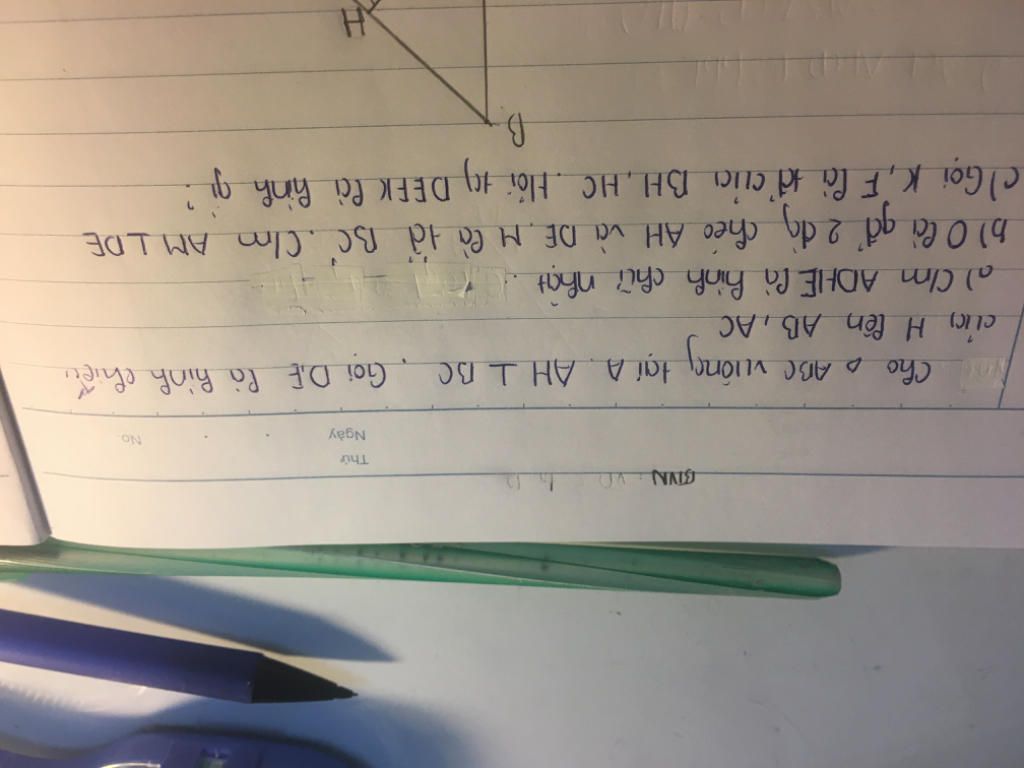 BTVN :
Thứ
Ngày
No.
Cho Δ ABC vuông tại A. AH ⊥ BC. Gọi D,E là hình chiếu
của H lên AB, AC
a) C/m ADHE là hình chữ nhật.
b) O là gđ 2 đg chéo AH và DE. M là tđ BC. C/m AM ⊥ DE
c) Gọi K, F là tđ của BH, HC. Hỏi tg DEFK là hình gì?
B
H